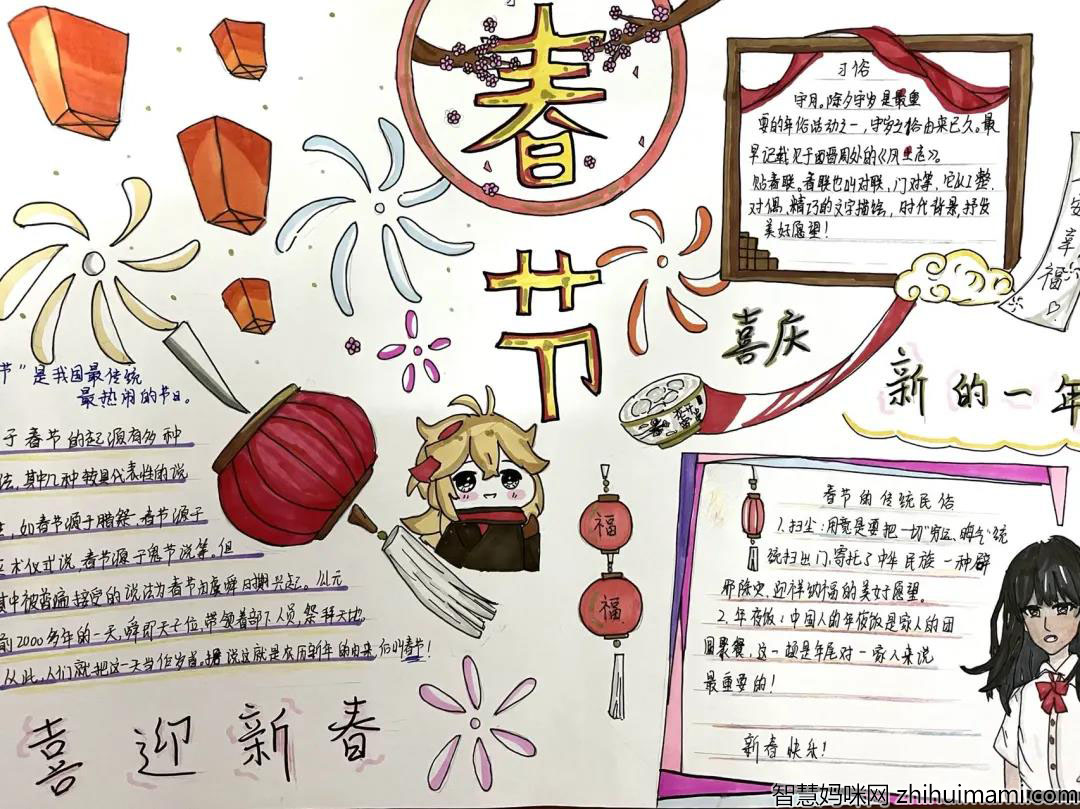 春
节
习俗
守月。除夕守岁是最重
要的年俗活动之一,守岁之俗由来已久。最
早记载见于西晋周处的《风土志》。
贴春联。春联也叫对联,门对等,它以工整、
对偶、精巧的文字描绘,时代背景,抒发
美好愿望!
福
喜庆
新的一年
节"是我国最传统
最热闹的节日。
于春节的起源有多种
法,其中几种较具代表性的说
如春节源于腊祭、春节源于
术仪式说,春节源于鬼节说等。但
其中被普遍接受的说法为春节由虞舜时期兴起。公元
前2000多年的一天,舜即天子位,带领着部下人员,祭拜天地。
从此,人们就把这一天当作岁首。据说这就是农历新年的由来,后叫春节!
福
福
春节的传统民俗
1.扫尘:用意是要把一切"穷运、晦气"统
统扫出门,寄托了中华民族一种辟
邪除灾、迎祥纳福的美好愿望。
2.年夜饭:中国人的年夜饭是家人的团
圆聚餐,这一顿是年尾对一家人来说
最重要的!
新春快乐!
喜迎新春
智慧妈咪网 zhihuimami.com